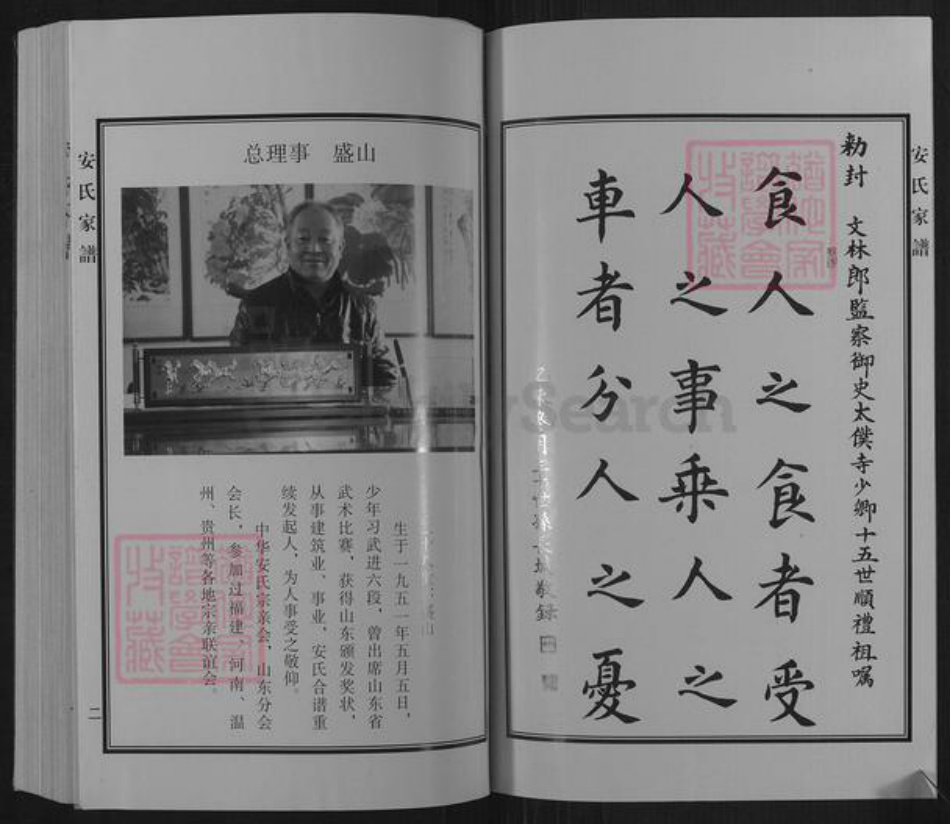 安氏家譜
勅封 文林郎監察御史太僕寺少卿十五世順禮祖囑
食人之食者受
人之事乘人之
車者分人之憂
敬錄
安氏家譜
总理事 盛山
生于一九五一年五月五日，
少年习武进六段，曾出席山东省
武术比赛，获得山东颁发奖状，
从事建筑业、事业，安氏合谱重
续发起人，为人事受之敬仰。
中华安氏宗亲会，山东分会
会长，参加过福建、河南、温
州、贵州等各地宗亲联谊会。
二